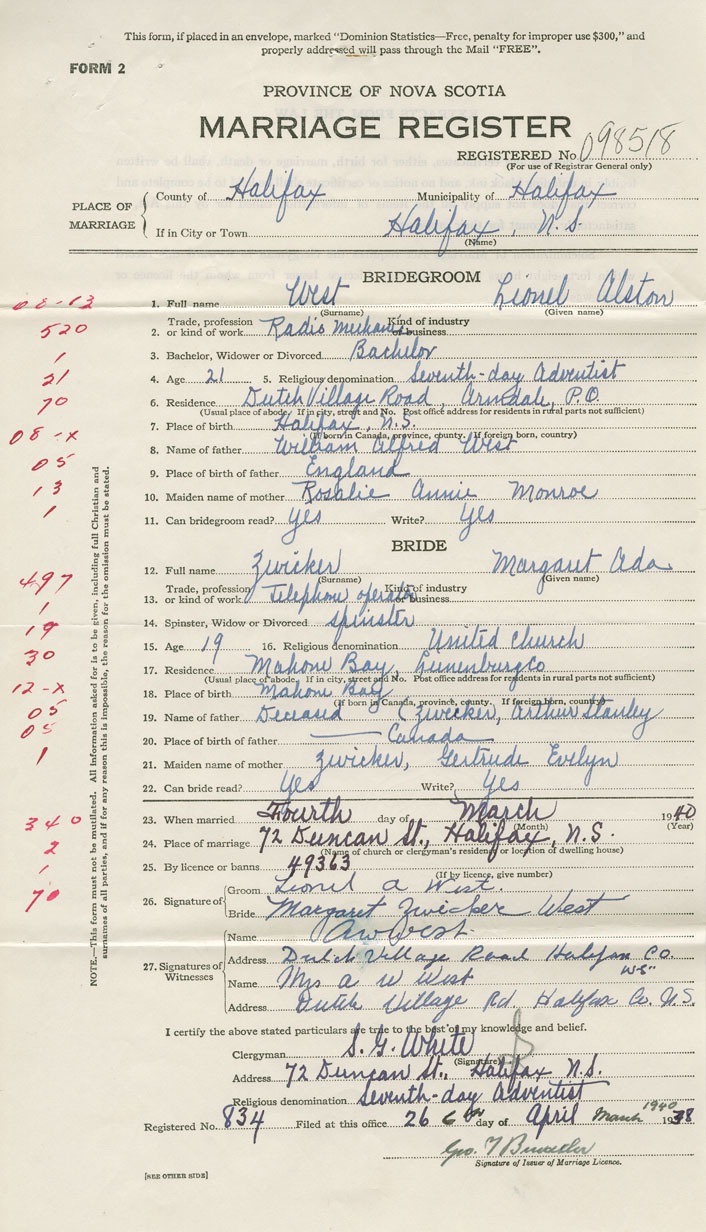 This form, if placed in an envelope, marked "Dominion Statistics—Free, penalty for improper use $300," and
properly addressed will pass through the Mail "FREE".
FORM 2
PROVINCE OF NOVA SCOTIA
MARRIAGE REGISTER
REGISTERED No. 098518
(For use of Registrar General only)
PLACE OF MARRIAGE
County of Halifax Municipality of Halifax
If in City or Town Halifax, N.S
(Name)
BRIDEGROOM
08-13
1. Full name West Lionel Alston
(Surname) (Given name)
520
Trade, profession Kind of industry
2. or kind of work Radio Mechanic or business
1
3. Bachelor, Widower or Divorced Bachelor
21
4. Age 21 5. Religious denomination Seventh-day Adventist
70
6. Residence Dutch Village Road, Armdale, P.O.
(Usual place of abode. If in city, street and No. Post office address for residents in rural parts not sufficient)
08-x
7. Place of birth Halifax, N.S.
(If born in Canada, province, county. If foreign born, country)
05
8. Name of father William Alfred West
13
9. Place of birth of father England
1
10. Maiden name of mother Rosalie Annie Monroe
11. Can bridegroom read? Yes Write? Yes
BRIDE
12. Full name Zwicker Margaret Ada
(Surname) (Given name)
497
Trade, profession Kind of industry
13. or kind of work Telephone operator or business
1
14. Spinster, Widow or Divorced Spinster
19
15. Age 19 16. Religious denomination United Church
30
17. Residence Mahone Bay, Lunenburg Co
(Usual place of abode. If in city, street and No. Post office address for residents in rural parts not sufficient)
12-x
18. Place of birth Mahone Bay
(If born in Canada, province, county. If foreign born, country)
05
19. Name of father Deceased (Zwicker, Arthur Stanley
05
20. Place of birth of father Canada
1
21. Maiden name of mother Zwicker, Gertrude Evelyn
22. Can bride read? Yes Write? Yes
340
23. When married Fourth day of March 1940
(Month) (Year)
2
24. Place of marriage 72 Duncan St., Halifax, N.S.
(Name of church or clergyman's residence or location of dwelling house)
1
25. By licence or banns 49363
(If by licence, give number)
70
26. Signature of
Groom Lionel A West.
Bride Margaret Zwicker West
27. Signatures of Witnesses
Name A W West
Address Dutch Village Road Halifax Co.
N.S.
Name Mrs A W West
Address Dutch Village Rd Halifax Co. N.S.
I certify the above stated particulars are true to the best of my knowledge and belief.
Clergyman S. G. White
(Signature)
Address 72 Duncan St., Halifax N.S.
Religious denomination Seventh-day Adventist
Registered No. 834 Filed at this office 26 6th day of April March 1940 1938
Geo.
Signature of Issuer of Marriage Licence.
[SEE OTHER SIDE]
NOTE.—This form must not be mutilated. All information asked for is to be given, including full Christian and
surnames of all parties, and if for any reason this is impossible, the reason for the omission must be stated.